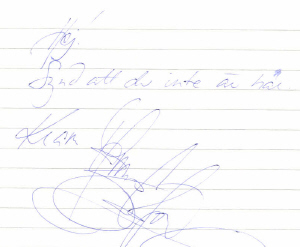 Hej!
Synd att du inte är här
Kram